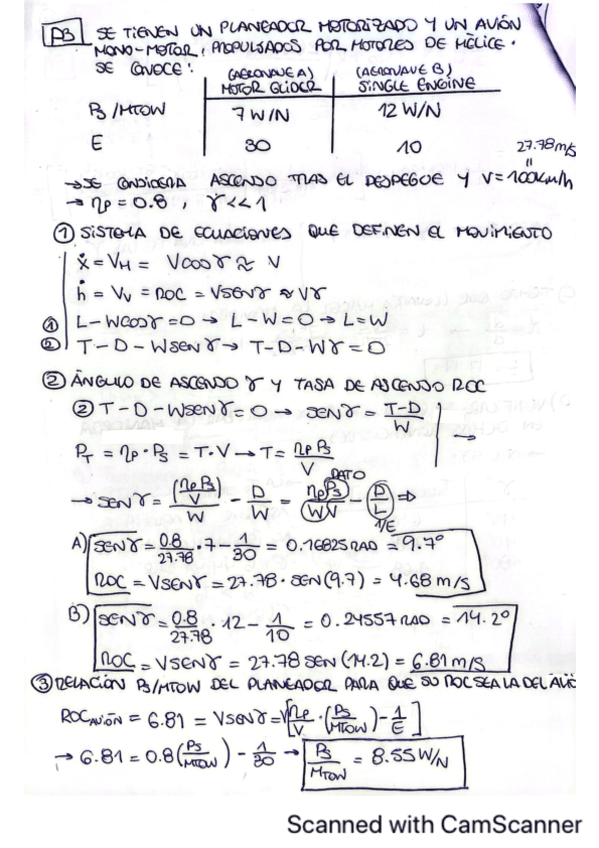 P3 SE TIENEN UN PLANEADOR MOTORIZADO Y UN AVIÓN
MONO-MOTOR, PROPULSADOS POR MOTORES DE HÉLICE.
SE CONOCE: (AERONAVE A) MOTOR GLIDER (AERONAVE B) SINGLE ENGINE
Ps/MTOW 7 W/N 12 W/N
E 30 10
27.78 m/s
→ SE CONSIDERA ASCENSO TRAS EL DESPEGUE Y V = 100 km/h
→ ηp = 0.8 , γ << 1
① SISTEMA DE ECUACIONES QUE DEFINEN EL MOVIMIENTO
ẋ = VH = V COS γ ≈ V
ḣ = VV = ROC = V SEN γ ≈ Vγ
① L - W COS γ = 0 → L - W = 0 → L = W
② T - D - W SEN γ → T - D - Wγ = 0
② ÁNGULO DE ASCENSO γ Y TASA DE ASCENSO ROC
② T - D - W SEN γ = 0 → SEN γ = (T-D)/W →
PT = ηp · Ps = T · V → T = ηp Ps / V
DATO
→ SEN γ = (ηp Ps / V)/W - D/W = ηp Ps / WV - D/L ⇒
1/E
A) SEN γ = 0.8/27.78 · 7 - 1/30 = 0.16825 RAD = 9.7°
ROC = V SEN γ = 27.78 · SEN (9.7) = 4.68 m/s
B) SEN γ = 0.8/27.78 · 12 - 1/10 = 0.24557 RAD = 14.2°
ROC = V SEN γ = 27.78 SEN (14.2) = 6.81 m/s
③ RELACIÓN Ps/MTOW DEL PLANEADOR PARA QUE SU ROC SEA LA DEL
ROC AVIÓN = 6.81 = V SEN γ = V[ηp/V · (Ps/MTOW) - 1/E]
→ 6.81 = 0.8 (Ps/MTOW) - 1/30 → Ps/MTOW = 8.55 W/N
Scanned with CamScanner